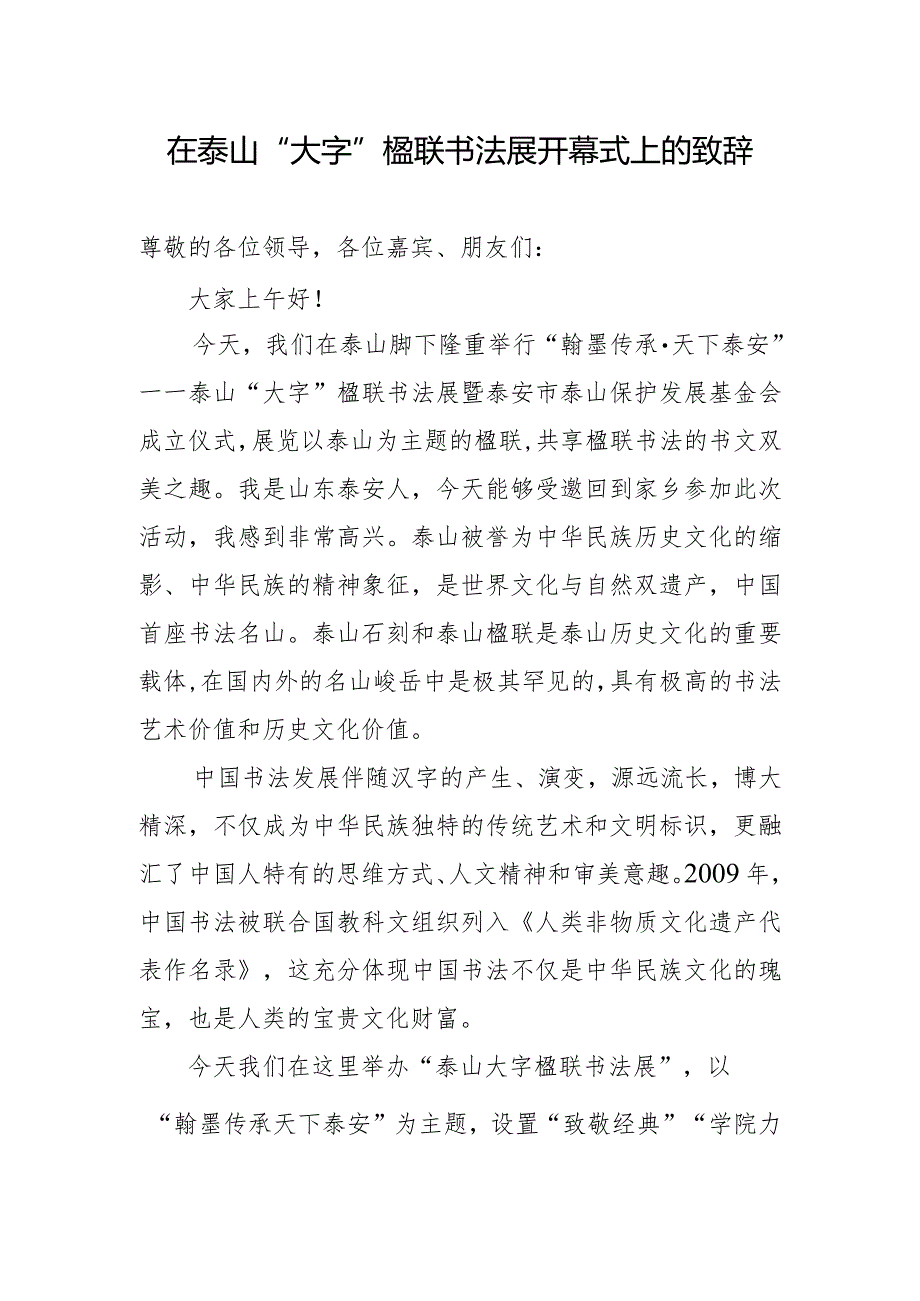 在泰山“大字”楹联书法展开幕式上的致辞
尊敬的各位领导，各位嘉宾、朋友们：
大家上午好！
今天，我们在泰山脚下隆重举行“翰墨传承·天下泰安”
一一泰山“大字”楹联书法展暨泰安市泰山保护发展基金会
成立仪式,展览以泰山为主题的楹联,共享楹联书法的书文双
美之趣。我是山东泰安人，今天能够受邀回到家乡参加此次
活动，我感到非常高兴。泰山被誉为中华民族历史文化的缩
影、中华民族的精神象征，是世界文化与自然双遗产，中国
首座书法名山。泰山石刻和泰山楹联是泰山历史文化的重要
载体,在国内外的名山峻岳中是极其罕见的,具有极高的书法
艺术价值和历史文化价值。
中国书法发展伴随汉字的产生、演变，源远流长，博大
精深，不仅成为中华民族独特的传统艺术和文明标识，更融
汇了中国人特有的思维方式、人文精神和审美意趣。2009 年，
中国书法被联合国教科文组织列入《人类非物质文化遗产代
表作名录》，这充分体现中国书法不仅是中华民族文化的瑰
宝，也是人类的宝贵文化财富。
今天我们在这里举办“泰山大字楹联书法展”，以
“翰墨传承天下泰安”为主题，设置“致敬经典”“学院力